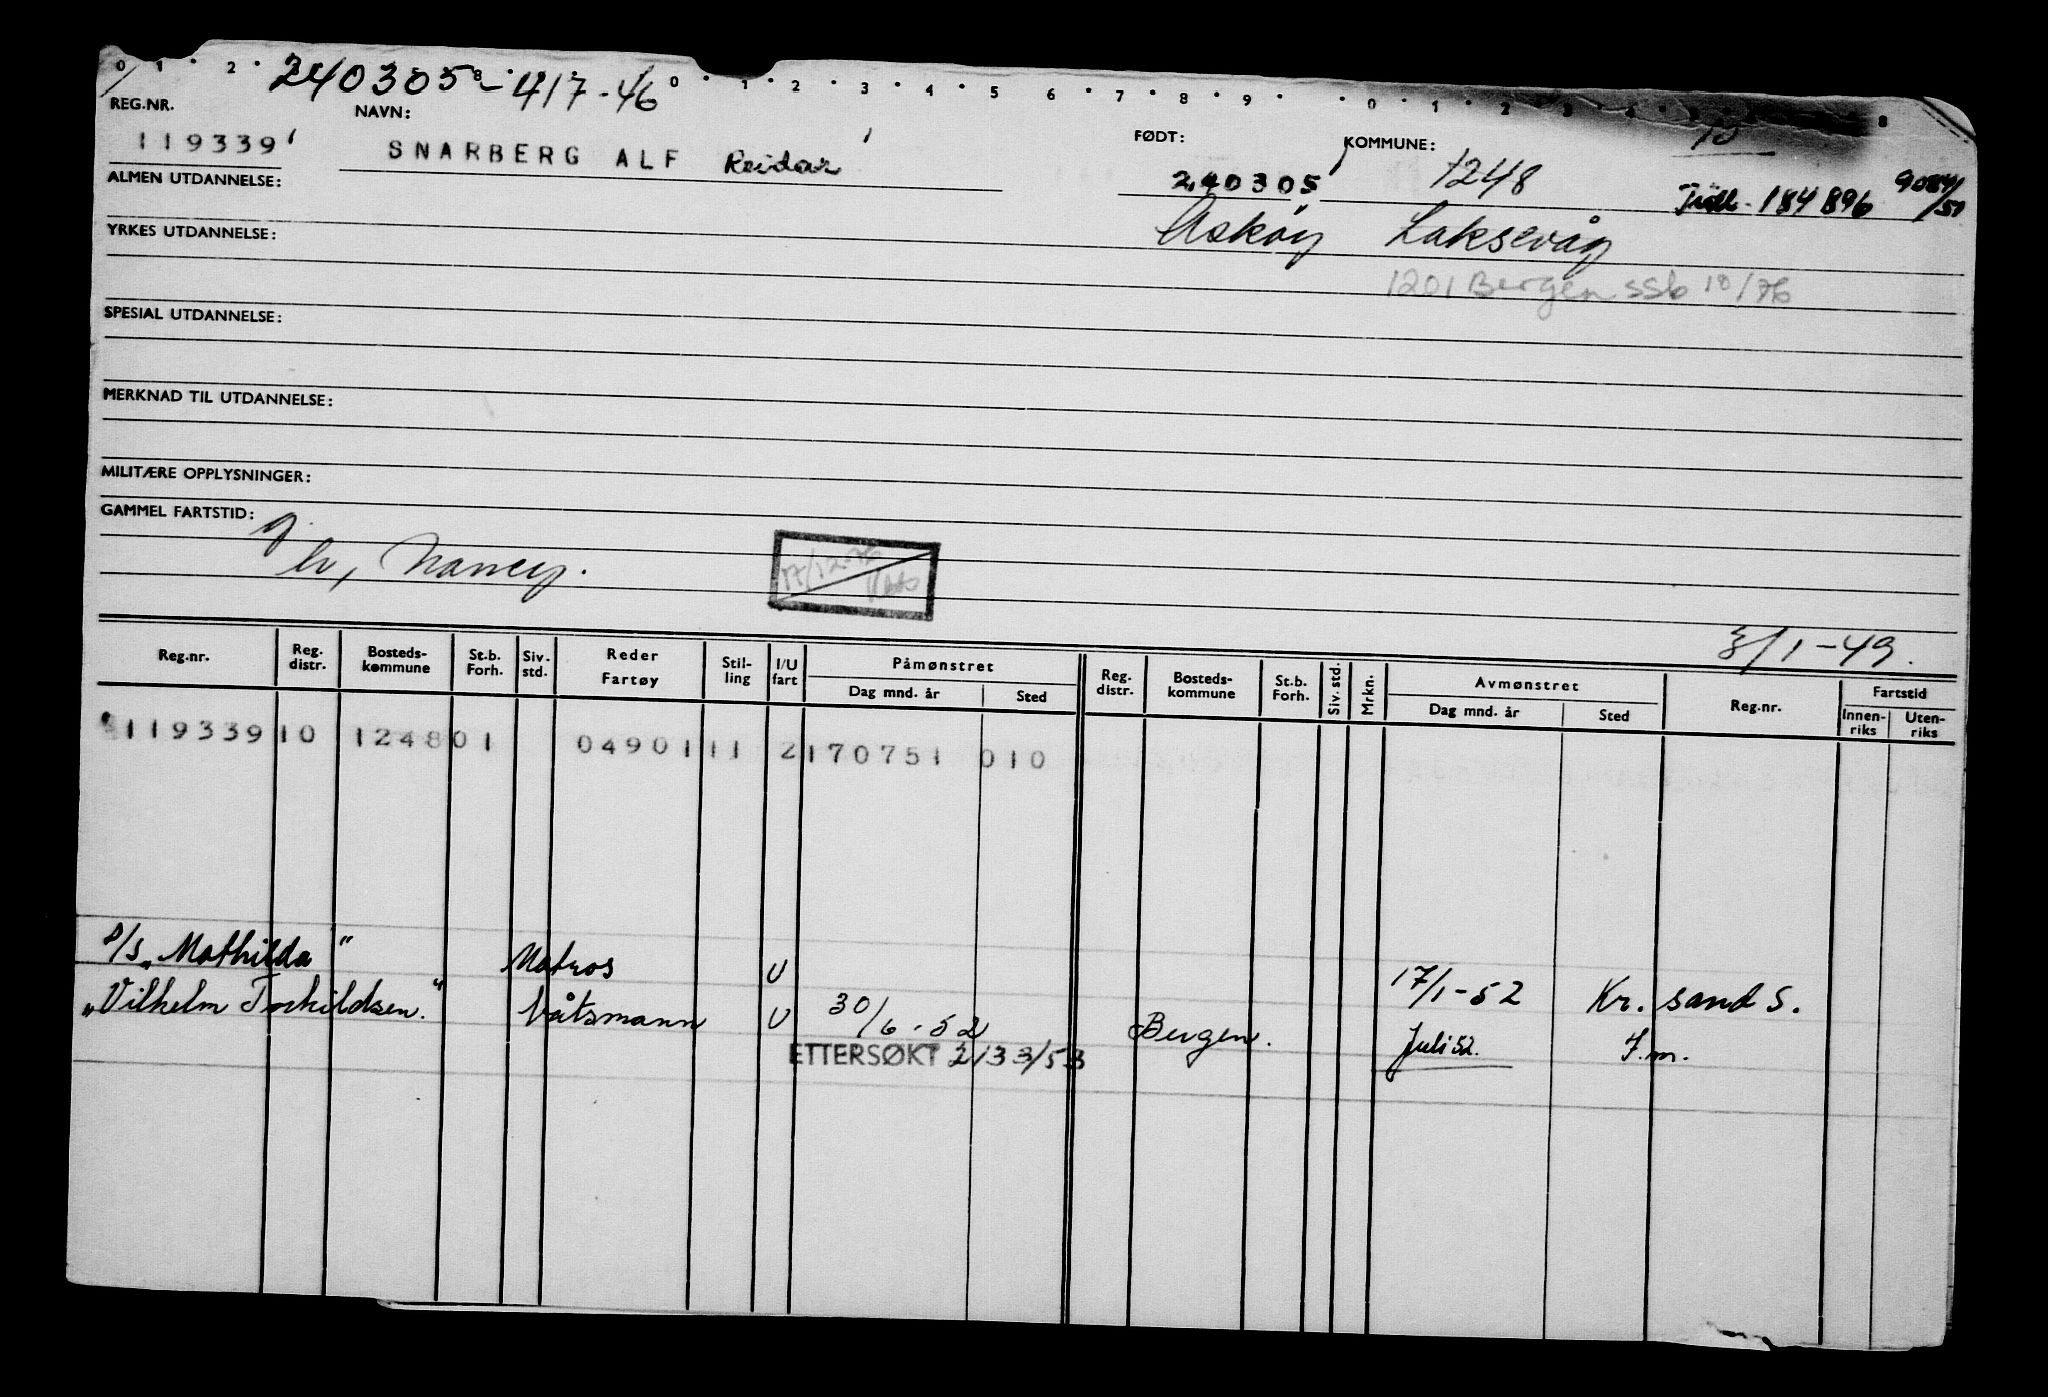 0 1 2 8 0 1 2 3 4 5 6 7 8 9 0 1 2 3 4 8
240305-417-46
REG.NR. NAVN: FØDT: KOMMUNE: 10
119339 SNARBERG ALF Reidar 240305 1248 184896 9084/51
ALMEN UTDANNELSE: Askøy Laksevåg
YRKES UTDANNELSE:
1201 Bergen SSb 18/76
SPESIAL UTDANNELSE:
MERKNAD TIL UTDANNELSE:
MILITÆRE OPPLYSNINGER:
GAMMEL FARTSTID:
Nancy.
17/12-76
3/1-49.
Reg.nr. Reg. distr. Bosteds-kommune St.b. Forh. Siv. std. Reder Fartøy Stil-ling I/U fart Påmønstret Dag mnd. år Sted Reg. distr. Bosteds-kommune St.b. Forh. Siv. std. Mrkn. Avmønstret Dag mnd. år Sted Reg.nr. Fartstid Innen-riks Uten-riks
119339 10 1248 01 04901 11 2 170751 010
s/s "Mathilda" Matros U 17/1-52 Kr. sand S.
"Vilhelm Torkildsen." båtsmann U 30/6-52 Bergen. Juli 52. F.m.
ETTERSØKT 2133/53